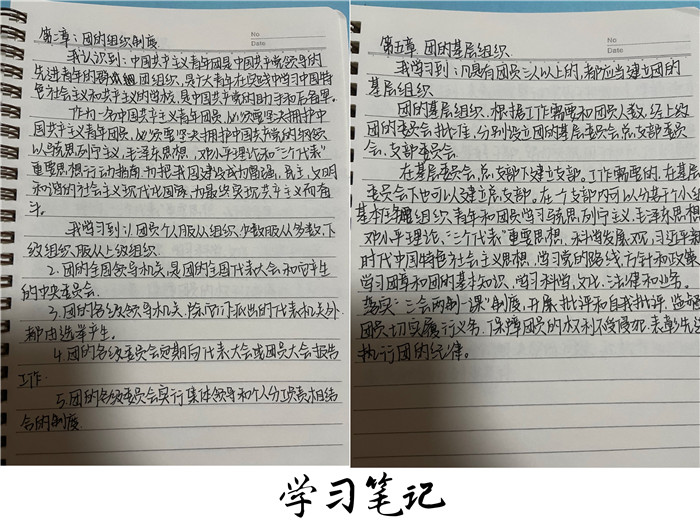 No
Date
第二章：团的组织制度
我认识到：中国共产主义青年团是中国共产党领导的
先进青年的群团组织，是广大青年在实践中学习中国特
色社会主义和共产主义的学校，是中国共产党的助手和后备军。
作为一名中国共产主义青年团员，必须要坚决拥护中
国共产主义青年团，必须要坚决拥护中国共产党的纲领
以马克思列宁主义，毛泽东思想，邓小平理论和“三个代表”
重要思想行动指南，为把我国建设成为富强，民主，文明
和谐的社会主义现代化国家，为最终实现共产主义而奋
斗。
我学习到：1.团员个人服从组织，少数服从多数，下
级组织服从上级组织.
2.团的全国领导机关，是团的全国代表大会和它产生
的中央委员会.
3.团的各级领导机关，除它们派出的代表机关外
都由选举产生。
4.团的各级委员会定期向代表大会或团员大会报告
工作.
5.团的各级委员会实行集体领导和个人分工负责相结
合的制度
No
Date
第五章 团的基层组织.
我学习到：凡是有团员三人以上的，都应当建立团的
基层组织.
团的基层组织，根据工作需要和团员人数，经上级
团的委员会批准，分别设立团的基层委员会，总支部委员
会，支部委员会.
在基层委员会，总支部下建立支部。工作需要的，在基层
委员会下也可以建立总支部。在一个支部内可以分若干个小组
组织青年和团员学习马克思，列宁主义，毛泽东思想
邓小平理论，“三个代表”重要思想，科学发展观，习近平新
时代中国特色社会主义思想，学习党的路线方针和政策
学习团章和团的基本知识，学习科学，文化，法律和业务。
落实“三会两制一课”制度，开展批评和自我批评，监督
团员切实履行义务，保障团员的权利不受侵犯，表彰先进
执行团的纪律。
学习笔记